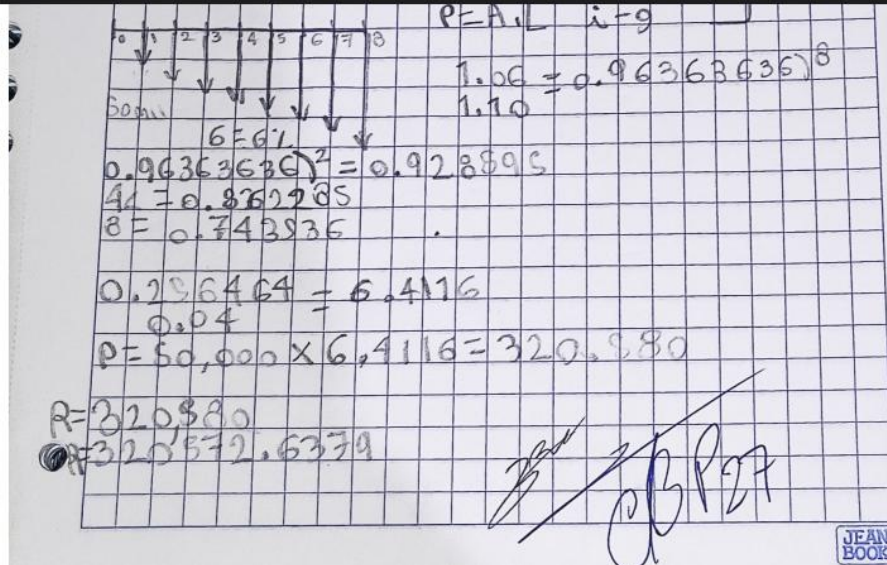 P=A.L i-g
0 1 2 3 4 5 6 7 8
1.06 = 0.96363636)⁸
1.10
50mil
6=6%
0.96363636)² = 0.928595
4L = 0.862285
8= 0.743536
0.256464 = 6.4116
0.04
P= 50,000 × 6,4116=320.580
R=320,580
R=320'572.6379
GBP27
JEAN
BOOK